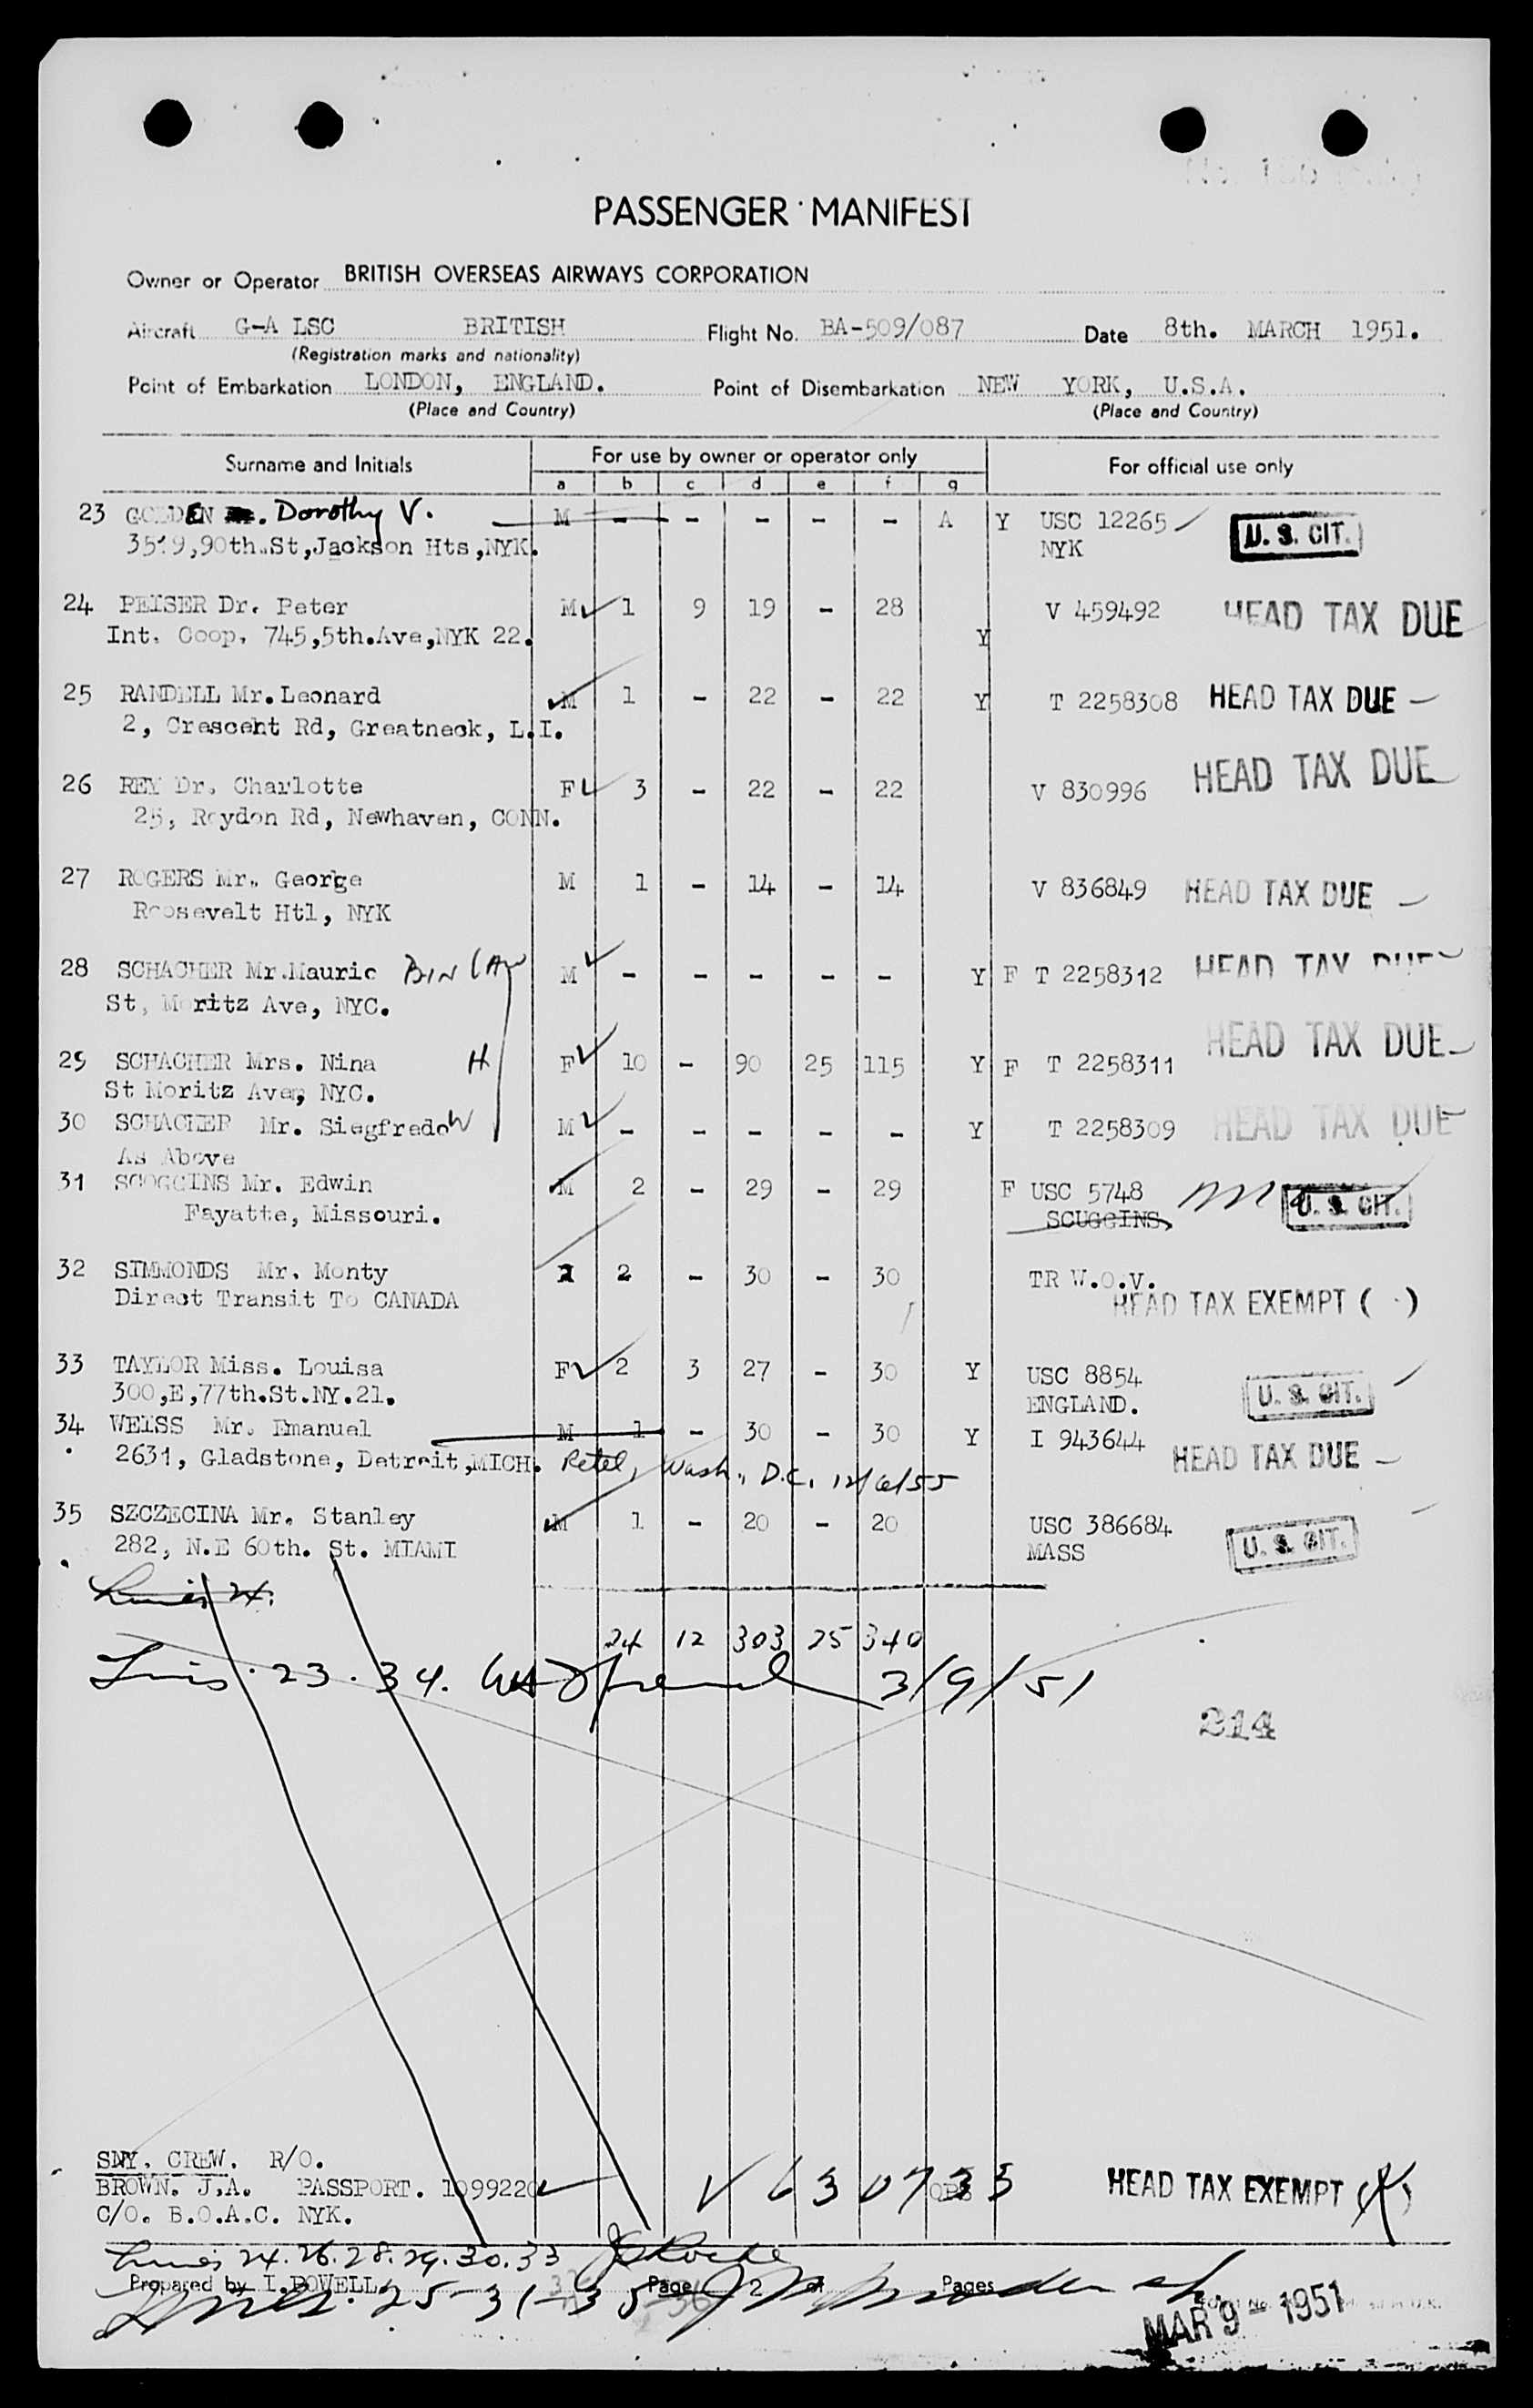 PASSENGER MANIFEST
Owner or Operator BRITISH OVERSEAS AIRWAYS CORPORATION
Aircraft G-A LSC BRITISH Flight No. BA-509/087 Date 8th. MARCH 1951.
(Registration marks and nationality)
Point of Embarkation LONDON, ENGLAND. Point of Disembarkation NEW YORK, U.S.A.
(Place and Country) (Place and Country)
Surname and Initials For use by owner or operator only For official use only
a b c d e f g
23 GOLDEN Dorothy V. M - - - - - A Y USC 12265 U. S. CIT.
3519,90th.St,Jackson Hts,NYK. NYK
24 PEISER Dr. Peter M 1 9 19 - 28 V 459492 HEAD TAX DUE
Int. Coop. 745,5th.Ave,NYK 22. Y
25 RANDELL Mr.Leonard M 1 - 22 - 22 Y T 2258308 HEAD TAX DUE
2, Crescent Rd, Greatneck, L.I.
26 REY Dr. Charlotte F 3 - 22 - 22 V 830996 HEAD TAX DUE
25, Roydon Rd, Newhaven, CONN.
27 ROGERS Mr. George M 1 - 14 - 14 V 836849 HEAD TAX DUE
Roosevelt Htl, NYK
28 SCHACHER Mr.Mauric M - - - - - Y F T 2258312 HEAD TAX DUE
St. Moritz Ave, NYC.
29 SCHACHER Mrs. Nina H F 10 - 90 25 115 Y F T 2258311 HEAD TAX DUE
St Moritz Ave, NYC.
30 SCHACHER Mr. Siegfredo W M - - - - - Y T 2258309 HEAD TAX DUE
As Above
31 SCOGGINS Mr. Edwin M 2 - 29 - 29 F USC 5748 U. S. CIT.
Fayatte, Missouri. SCUGGINS,
32 SIMMONDS Mr. Monty 2 - 30 - 30 TR W.O.V.
Direct Transit To CANADA HEAD TAX EXEMPT ( )
33 TAYLOR Miss. Louisa F 2 3 27 - 30 Y USC 8854 U. S. CIT.
300,E,77th.St.NY.21. ENGLAND.
34 WEISS Mr. Emanuel M 1 - 30 - 30 Y I 943644 HEAD TAX DUE
2631, Gladstone, Detroit,MICH. Retd, Wash., D.C. 12/6/55
35 SZCZECINA Mr. Stanley M 1 - 20 - 20 USC 386684 U. S. CIT.
282, N.E 60th. St. MIAMI MASS
24 12 303 25 340
23. 34. 3/9/51
214
SNY. CREW. R/O.
BROWN. J.A. PASSPORT. 1099220 V 630733 HEAD TAX EXEMPT ( )
C/O. B.O.A.C. NYK.
Lines 24.26.28.29.30.33
Prepared by I.POWELL Page 2 of Pages
Lines. 25-31-35
MAR 9 - 1951